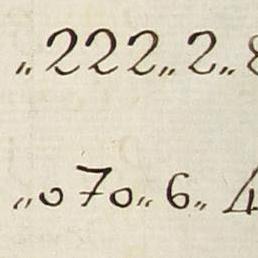 „222„2„8
„070„6„4